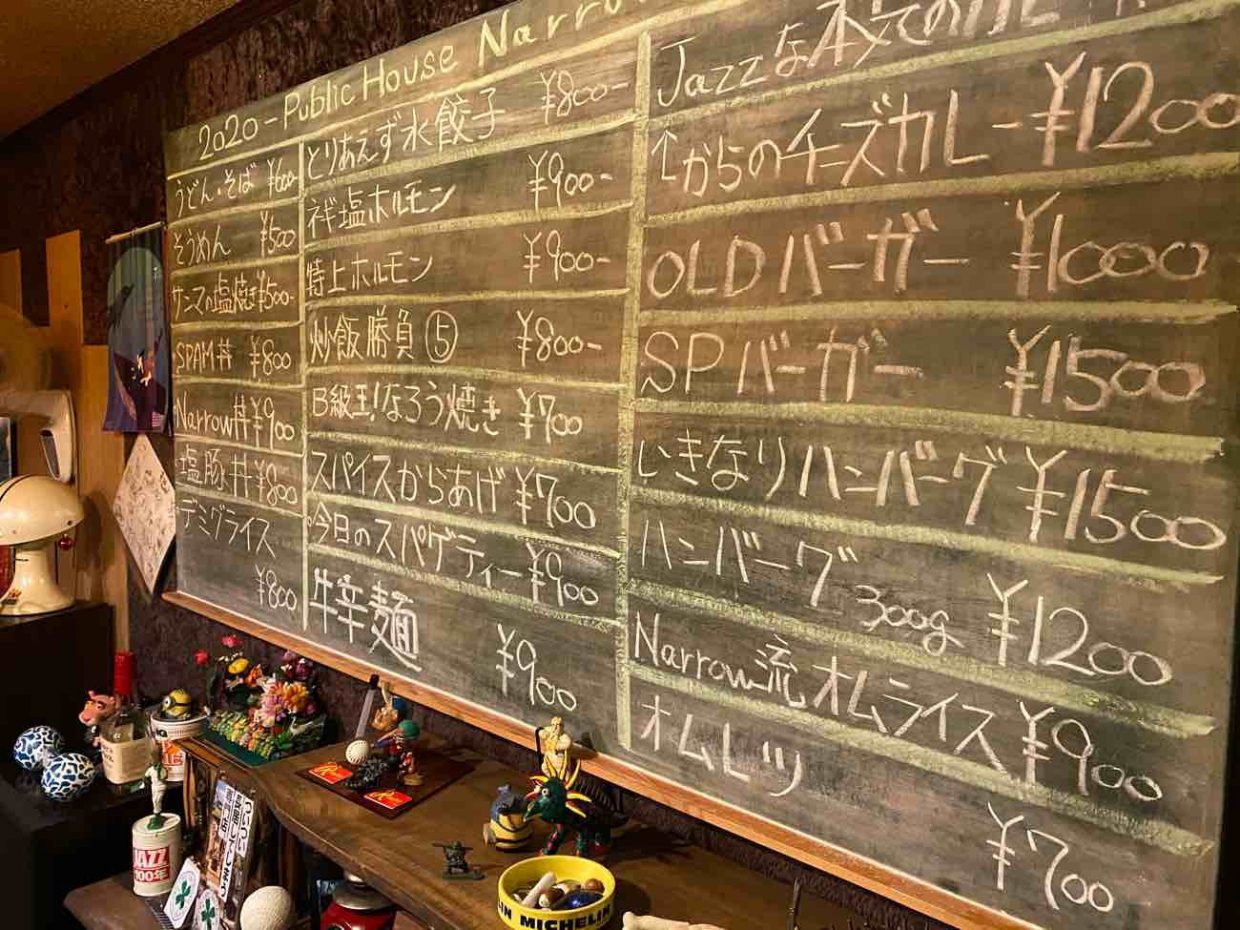 2020 - Public House Narrow
うどん・そば ¥600-
そうめん ¥500
サンマの塩焼き ¥500-
SPAM丼 ¥800
Narrow丼 ¥900
塩豚丼 ¥800
デミグライス
¥800
とりあえず水餃子 ¥800-
塩ホルモン ¥900-
特上ホルモン ¥900-
炒飯勝負⑤ ¥800-
B級王!なろう焼き ¥700
スパイスからあげ ¥700
今日のスパゲティー ¥900
牛辛麺
¥900
Jazzな本気のカレー
↑からのチーズカレー ¥1200
OLDバーガー ¥1000
SPバーガー ¥1500
いきなりハンバーグ ¥1500
ハンバーグ 300g ¥1200
Narrow流オムライス ¥900
オムレツ
¥700
JAZZ
100年
MICHELIN